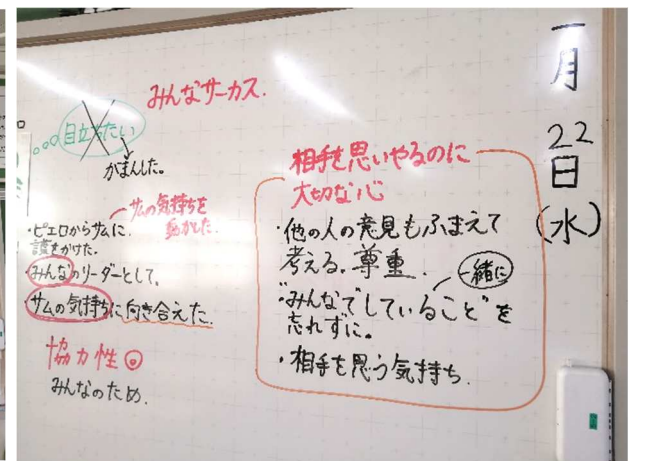 一月
22
日
(水)
みんなサーカス.
目立ちたい
がまんした。
サムの気持ちを
動かした.
・ピエロからサムに.
話をかけた.
みんなのリーダーとして。
サムの気持ちに向き合えた.
協力性◎
みんなのため.
相手を思いやるのに
大切な心
・他の人の意見もふまえて
考える。尊重.
一緒に
・"みんなでしていること"を
忘れずに。
・相手を思う気持ち.